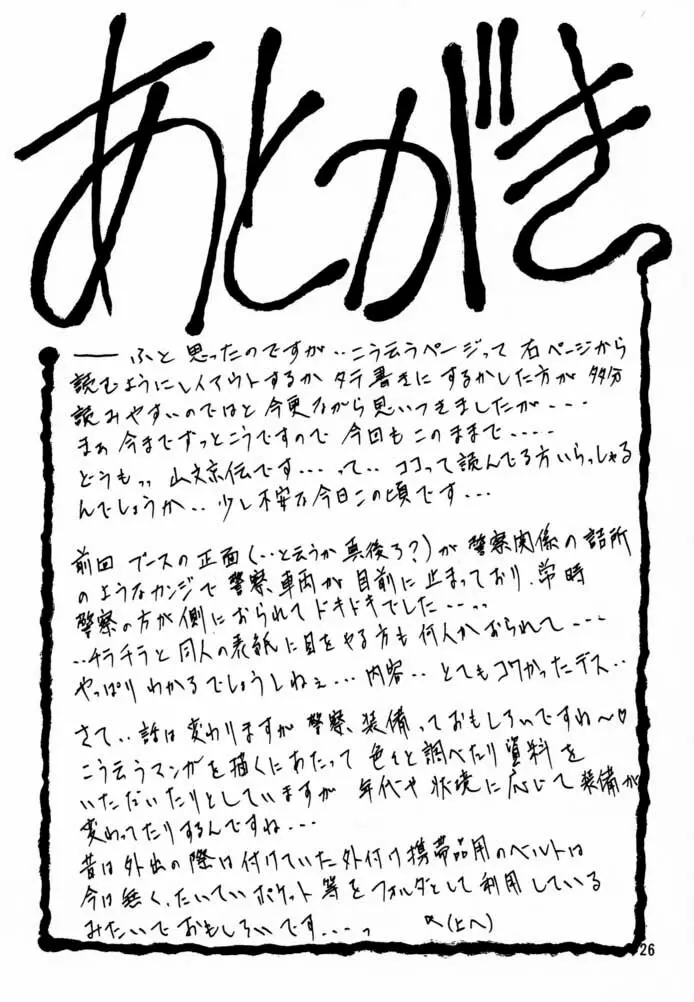 あとがき
── ふと 思ったのですが‥こう云うページって 右ページから
読むようにレイアウトするか タテ書きに するかした方が 多分
読みやすいのではと 今更ながら思いつきましたが‥‥
まぁ 今までずっとこうですので 今回も このままで‥‥‥
どうもっっ 山文京伝です‥‥って‥ ココって読んでる方いらっしゃる
んでしょうか‥ 少し不安な今日この頃です‥‥
前回 ブースの正面(‥と云うか真後ろ?)が 警察関係の詰所
のようなカンジで 警察車両が 目前に 止まっており、常時
警察の方が側に おられて ドキドキでした‥‥っっ
‥チラチラと 同人の表紙に目をやる方も 何人か おられて‥‥‥
やっぱり わかるでしょうしねぇ‥‥内容‥ とてもコワかったデス‥
さて‥ 話は変わりますが 警察装備って おもしろいですね〜♡
こう云うマンガを 描くにあたって 色々と調べたり 資料を
いただいたりとしていますが 年代や 状況に 応じて 装備が
変わってたりするんですね‥‥
昔は 外出の際は付けていた 外付け携帯品用のベルトは
今は無く、たいてい ポケット等を フォルダとして 利用している
みたいで おもしろいです‥‥っ (上へ)
26